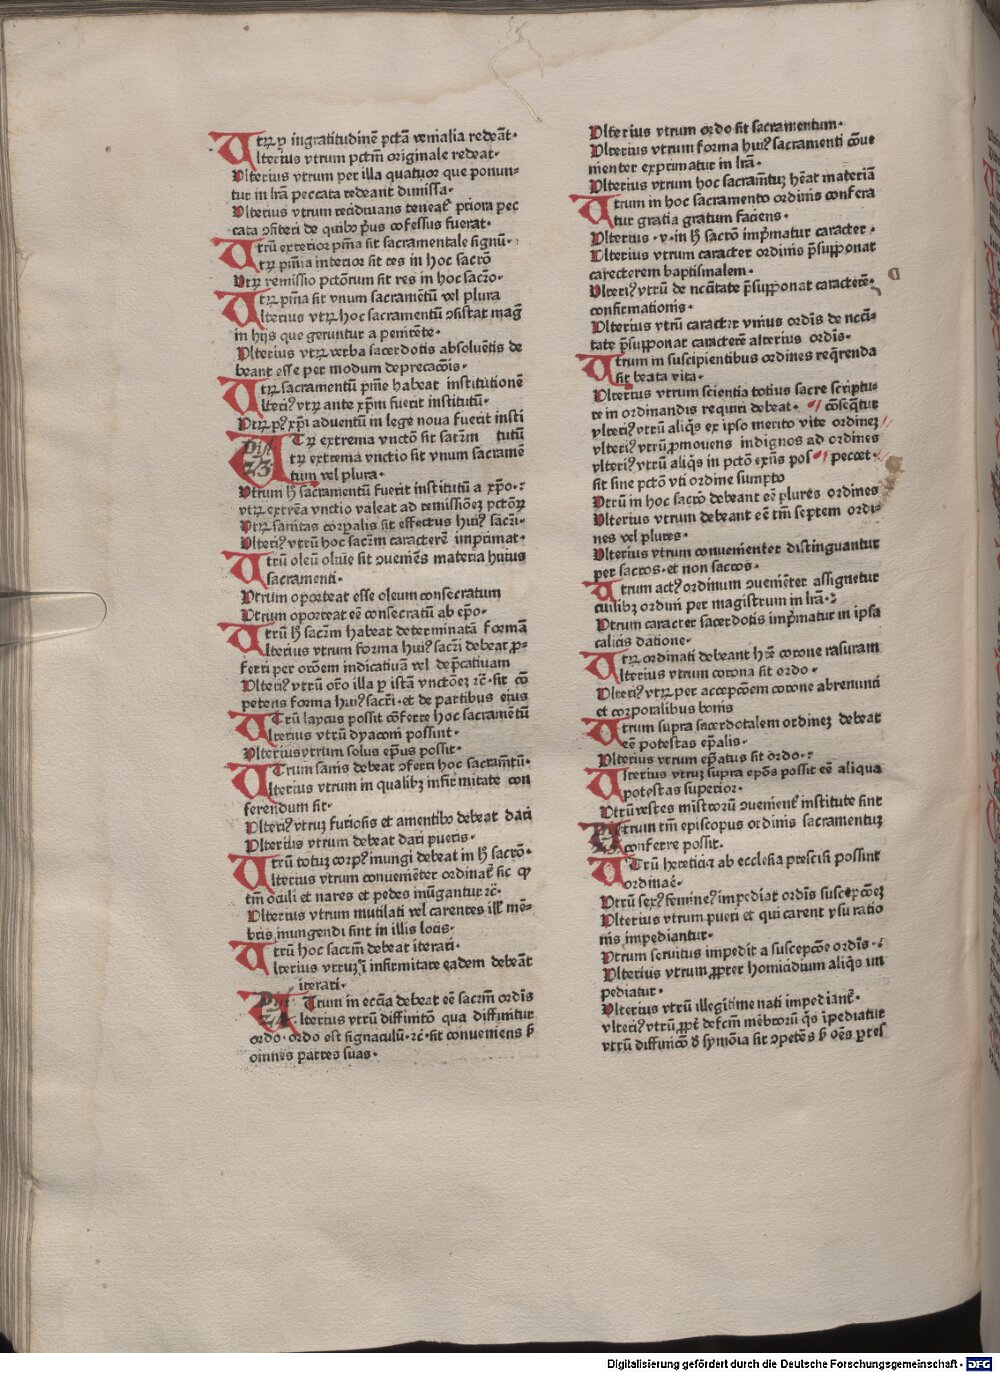 Utrꝝ ꝑ ingratitudinē pctā venialia redeāt·
Ulterius vtrum pctm̄ originale redeat·
Ulterius vtrum per illa quatuor que ponun-
tur in lr̄a peccata redeant dimissa·
Ulterius vtrum recidiuans teneat᷑ priora pec
cata ꝯfiteri de quibꝰ pͥus cōfessus fuerat·
Utrū exterior pn̄ia sit sacramentale signū·
Utrꝝ pn̄iā interior sit res in hoc sacrō
Utrꝝ remissio pctōrum sit res in hoc sacr̄o·
Utrꝝ pn̄ia sit vnum sacramētū vel plura
Ulterius vtrꝝ hoc sacramentū ꝯsistat maḡ
in hijs que geruntur a penitēte·
Ulterius vtrꝝ verba sacerdotis absoluētis de
beant esse per modum deprecacōis·
Utrꝝ sacramentū pn̄ie habeat institutionē
Ulteriꝰ vtꝝ ante xp̄m fuerit institutū·
Utrꝝ pꝰ xp̄i aduentū in lege noua fuerit insti
Utꝝ extrema vnctō sit sacr̄m tutū
Dist 23
Utꝝ extrema vnctio sit vnum sacramē
tum vel plura·
Utrum hͦ sacramentū fuerit institutū a xp̄o·:
vtꝝ extrēa vnctio valeat ad remissiōeꝫ pctōꝝ
Utrꝝ sanitas corꝑalis sit effectus huiꝰ sac̄ri·
Ulteriꝰ vtrū hoc sacr̄m caracterē imprimat·
Utrū oleū oliue sit ꝯueniēs materia huius
sacramenti·
Utrum oporteat esse oleum consecratum
Utrum oporteat eē consecratū ab ep̄o·
Utrū hͦ sacr̄m habeat determinatā formā
Ulterius vtrum forma huiꝰ sacr̄i debeat ꝓ-
ferri per orōem indicatiuā vel dep̄catiuam
Ulteriꝰ vtrū or̄o illa ꝑ istā vnctōeꝫ ⁊c̄· sit cō
petens forma huiꝰ sacri· et de partibus eius
Utrū laycus possit cōferre hoc sacramētū
Ulterius vtrū dyaconi possint·
Ulterius vtrum solus ep̄us possit·
Utrum sanis debeat ꝯferri hoc sacramētū·
Ulterius vtrum in qualibꝫ infirmitate con
ferendum sit·
Ulteriꝰ vtruꝫ furiosis et amentibꝰ debeat dari
Ulterius vtrum debeat dari pueris·
Utrū totuꝫ corpꝰ inungi debeat in hͦ sacrō·
Ulterius vtrum conuenienter ordinat᷑ sic ꝙ
tm̄ oculi et nares et pedes inūgantur ⁊c̄·
Ulterius vtrum mutilati vel carentes ill' mē-
bris inungendi sint in illis locis·
Utrū hoc sacrm̄ debeat iterari·
Ulterius vtruꝫ ī infirmitate eadem debeāt
iterari·
Dist 24
Utrum in ecc̄ia debeat eē sacrm̄ ordis
Ulterius vtrū diffinitō qua diffinitur
ordo· ordo est signaculū· ⁊c̄· sit conueniens ẜ
omnes partes suas·
Ulterius vtrum ordo sit sacramentum·
Ulterius vtrum forma huiꝰ sacramenti cōue
nienter exprimatur in lr̄a·
Ulterius vtrum hoc sacram̄tuꝫ hēat materiā
Utrum in hoc sacramento ordinis confera
tur gratia gratum faciens·
Ulterius · v· in hͦ sacrō imp̄matur caracter·
Ulterius vtrum caracter ordinis p̄supponat
carecterem baptismalem·
Ulteriꝰ vtrū de nc̄itate p̄supponat caracterē·
confirmationis·
Ulterius vtrū caracter vnius ordīs de ncc̄i-
tate p̄supponat caracterē alterius ordis·
Utrum in suscipientibus ordines req̄renda
sit beata vita·
Ulterius vtrum scientia totius sacre scriptu-
re in ordinandis requiri debeat· // cōseq̄tur
vlteriꝰ vtrū aliq̄s ex ipso merito vite ordineꝫ //
vlteriꝰ vtrū ꝓmouens indignos ad ordines
vlteriꝰ vtrū aliq̄s in pctō exn̄s pos // peccet· //
sit sine pctō vti ordine sumpto
Utrū in hoc sacr̄o debeant eē plures ordines
Ulterius vtrum debeant eē tm̄ septem ordi-
nes vel plures·
Ulterius vtrum conuenienter distinguantur
per sacros· et non sacros·
Utrum actꝰ ordinum ꝯueniēter assignetur
cuilibꝫ ordini per magistrum in lr̄a·:
Utrum caracter sacerdotis imp̄matur in ipsa
calicis datione·
Utꝝ ordinati debeant hr̄e corone rasuram
Ulterius vtrum corona sit ordo·
Ulteriꝰ vtꝝ per accepcōem corone abrenunti
et corporalibus bonis
Utrum supra sacerdotalem ordineꝫ debeat
eē potestas ep̄alis·
Ulterius vtrum ep̄atus sit ordo·:
Ulterius vtruꝫ supra ep̄os possit eē aliqua
potestas superior·
Utrū vestes mīstrorū ꝯuenient᷑ institute sint
Utrum tm̄ episcopus ordinis sacramentuꝫ
conferre possit·
Utrū hereticiꝫ ab ecclesia precisi possint
ordinar̄e·
Utrū sexꝰ femineꝰ impediat ordis suscepcōeꝫ
Ulterius vtrum pueri et qui carent vsu ratio
nis impediantur·
Utrum seruitus impedit a suscepcōe ordis·:
Ulterius vtrum ꝓpter homicidium aliq̄s im
pediatur·
Ulterius vtrū illegitime nati impediant᷑·
vlteriꝰ vtrū ꝓpt᷑ defcm̄ mēbrorū q̄s īpediatur
vtrū diffinitō d̕ symōia sit ꝯpetēs ẜ oēs ꝑtes
Digitalisierung gefördert durch die Deutsche Forschungsgemeinschaft · DFG